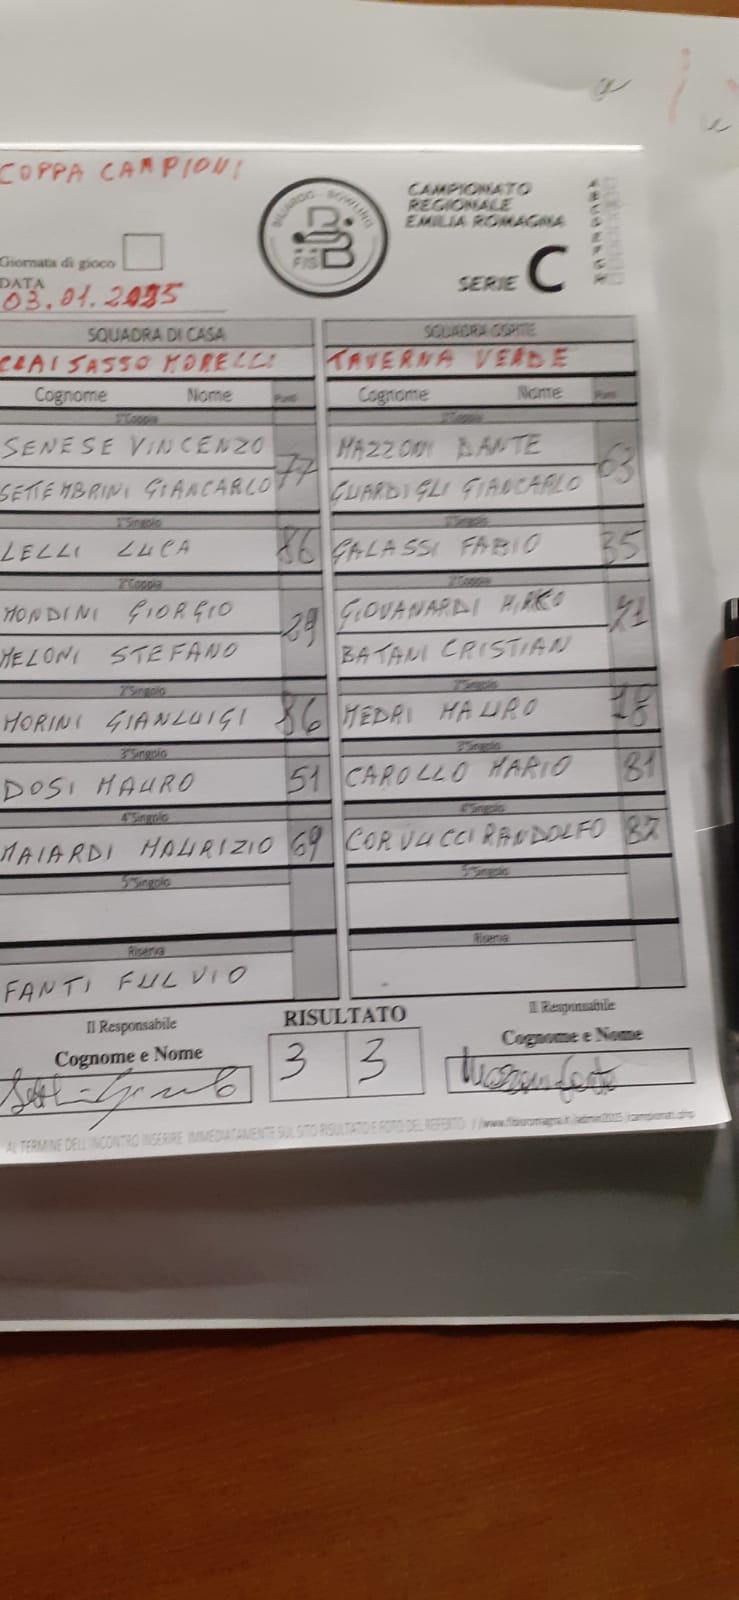 COPPA CAMPIONI
BILIARDO - BOWLING
FISBB
CAMPIONATO
REGIONALE
EMILIA ROMAGNA
SERIE C
Giornata di gioco
DATA
03.01.2025
SQUADRA DI CASA SQUADRA OSPITE
CLAI SASSO MORELLI TAVERNA VERDE
Cognome Nome Punti Cognome Nome Punti
1°Coppia 1°Coppia
SENESE VINCENZO 77 MAZZONI DANTE 63
SETTEMBRINI GIANCARLO GUARDIGLI GIANCARLO
1°Singolo 1°Singolo
LELLI LUCA 86 GALASSI FABIO 35
2°Coppia 2°Coppia
MONDINI GIORGIO 29 GIOVANARDI MIRKO
MELONI STEFANO BATANI CRISTIAN
2°Singolo 2°Singolo
MORINI GIANLUIGI 86 MEDRI MAURO
3°Singolo 3°Singolo
DOSI MAURO 51 CAROLLO MARIO 81
4°Singolo 4°Singolo
MAIARDI MAURIZIO 69 CORVUCCI RANDOLFO 82
5°Singolo 5°Singolo
Riserva Riserva
FANTI FULVIO
Il Responsabile RISULTATO Il Responsabile
Cognome e Nome 3 3 Cognome e Nome
AL TERMINE DELL'INCONTRO INSERIRE IMMEDIATAMENTE SUL SITO RISULTATO E FOTO DEL REFERTO